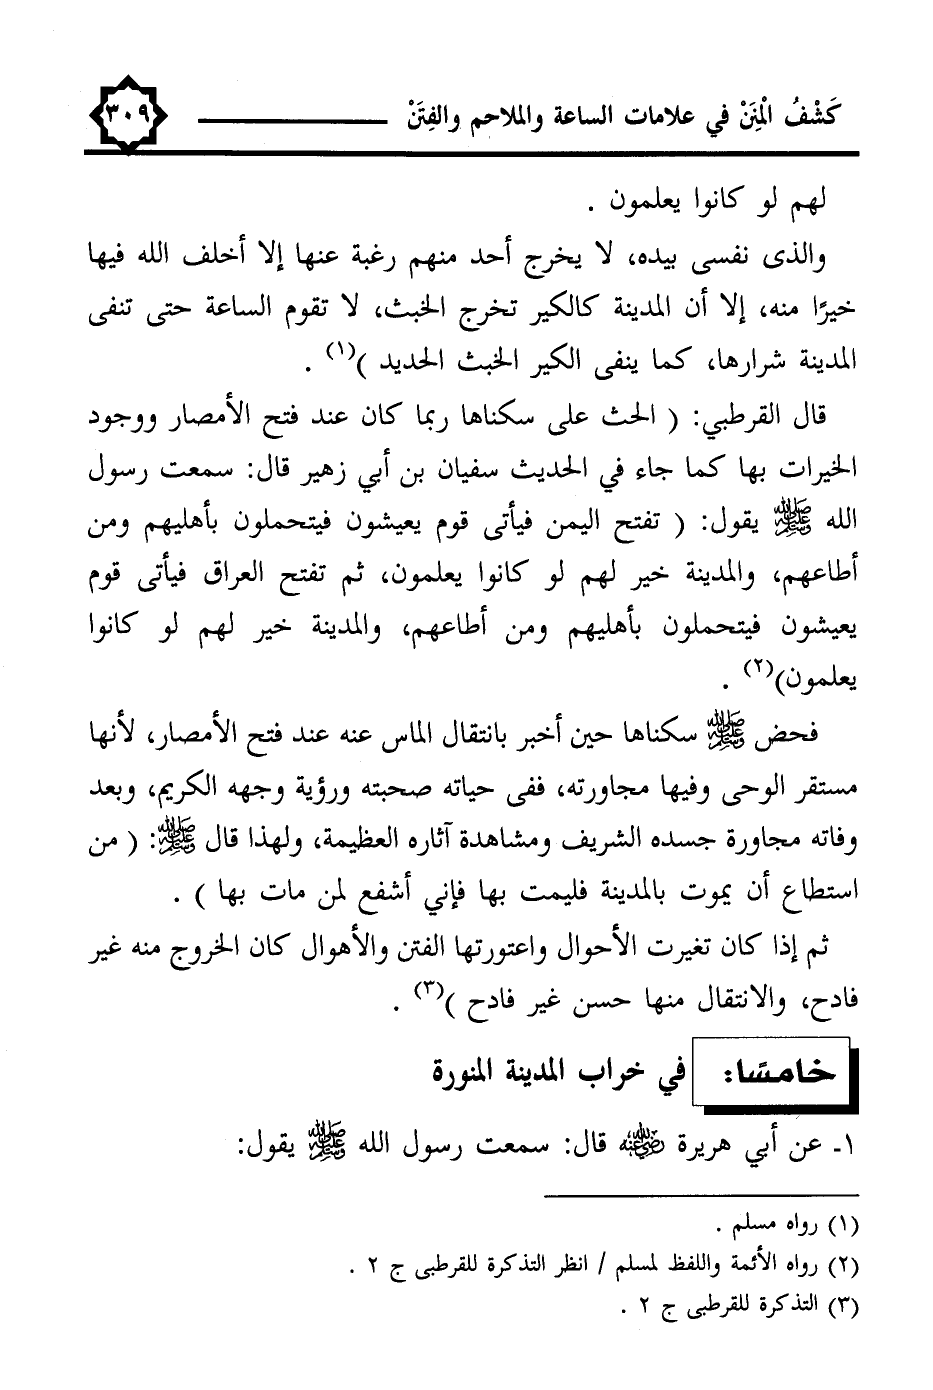 كَشْفُ الْمِنَنْ في علامات الساعة والملاحم والفِتَنْ ٣٠٩
لهم لو كانوا يعلمون .
والذى نفسى بيده، لا يخرج أحد منهم رغبة عنها إلا أخلف الله فيها
خيرًا منه، إلا أن المدينة كالكير تخرج الخبث، لا تقوم الساعة حتى تنفى
المدينة شرارها، كما ينفى الكير الخبث الحديد )(١) .
قال القرطبي: ( الحث على سكناها ربما كان عند فتح الأمصار ووجود
الخيرات بها كما جاء في الحديث سفيان بن أبي زهير قال: سمعت رسول
الله ﷺ يقول: ( تفتح اليمن فيأتى قوم يعيشون فيتحملون بأهليهم ومن
أطاعهم، والمدينة خير لهم لو كانوا يعلمون، ثم تفتح العراق فيأتى قوم
يعيشون فيتحملون بأهليهم ومن أطاعهم، والمدينة خير لهم لو كانوا
يعلمون)(٢) .
فحض ﷺ سكناها حين أخبر بانتقال الماس عنه عند فتح الأمصار، لأنها
مستقر الوحى وفيها مجاورته، ففى حياته صحبته ورؤية وجهه الكريم، وبعد
وفاته مجاورة جسده الشريف ومشاهدة آثاره العظيمة، ولهذا قال ﷺ: ( من
استطاع أن يموت بالمدينة فليمت بها فإني أشفع لمن مات بها ) .
ثم إذا كان تغيرت الأحوال واعتورتها الفتن والأهوال كان الخروج منه غير
فادح، والانتقال منها حسن غير فادح )(٣) .
خامسًا: في خراب المدينة المنورة
١ـ عن أبي هريرة رضي الله عنه قال: سمعت رسول الله ﷺ يقول:
(١) رواه مسلم .
(٢) رواه الأئمة واللفظ لمسلم / انظر التذكرة للقرطبى ج ٢ .
(٣) التذكرة للقرطبى ج ٢ .